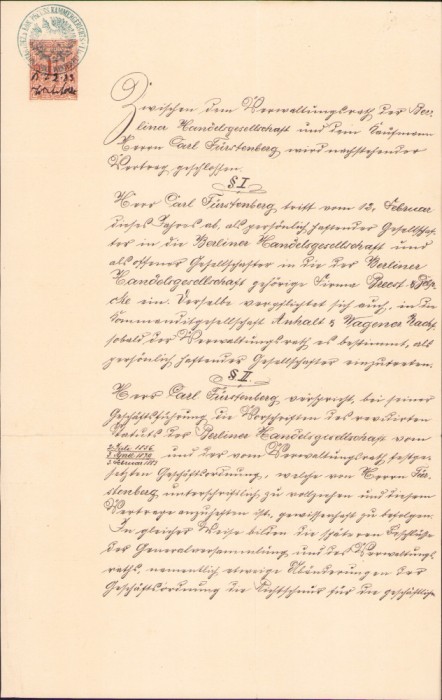 Zwischen dem Verwaltungsrath der Ber-
liner Handelsgesellschaft und dem Kaufmann
Herrn Carl Fürstenberg wird nachstehender
Vertrag geschlossen.
§ I
Herr Carl Fürstenberg tritt vom 12. Februar
dieses Jahres ab, als persönlich haftender Gesellschaf-
ter in die Berliner Handelsgesellschaft und
als offener Gesellschafter in die der Berliner
Handelsgesellschaft gehörige Firma Breest & Gelp-
cke ein. Derselbe verpflichtet sich auch, in die
Kommanditgesellschaft Anhalt & Wagener Nachf.
sobald der Verwaltungsrath es bestimmt, als
persönlich haftender Gesellschafter einzutreten.
§ II
Herr Carl Fürstenberg verspricht, bei seiner
Geschäftsführung die Vorschriften des revidirten
Statuts der Berliner Handelsgesellschaft vom
2. Juli 1856
und der vom Verwaltungsrath festge-
setzten Geschäftsordnung, welche von Herrn Für-
stenberg unterschriftlich zu vollziehen und diesem
Vertrage anzuheften ist, gewissenhaft zu befolgen.
In gleicher Weise bilden die späteren Beschlüsse
der Generalversammlung und des Verwaltungs-
raths, namentlich etwaige Abänderungen der
Geschäftsordnung die Richtschnur für die geschäftliche